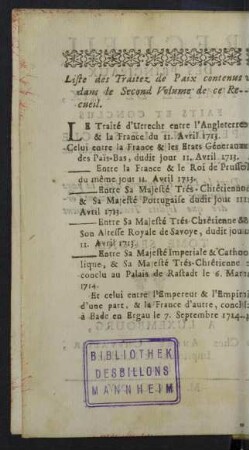 Liste des Traitez de Paix contenus
dans le Second Volume de ce Re-
cueil.
LE Traité d'Utrecht entre l'Angleterre
& la France du 11. Avril 1713.
Celui entre la France & les Etats Généraux
des Païs-Bas, dudit jour 11. Avril. 1713.
Entre la France & le Roi de Prusse
du même jour 11. Avril 1713.
Entre Sa Majesté Trés-Chrétienne
& Sa Majesté Portugaise dudit Jour 11.
Avril 1713.
Entre Sa Majesté Trés-Chrétienne &
Son Altesse Royale de Savoye, dudit jour
11. Avril 1713.
Entre Sa Majesté Imperiale & Catho-
lique, & Sa Majesté Trés-Chrétienne
conclu au Palais de Rastadt le 6. Mars
1714.
Et celui entre l'Empereur & l'Empire
d'une part, & la France d'autre, conclu
à Bade en Ergau le 7. Septembre 1714.
BIBLIOTHEK
DESBILLONS
MANNHEIM